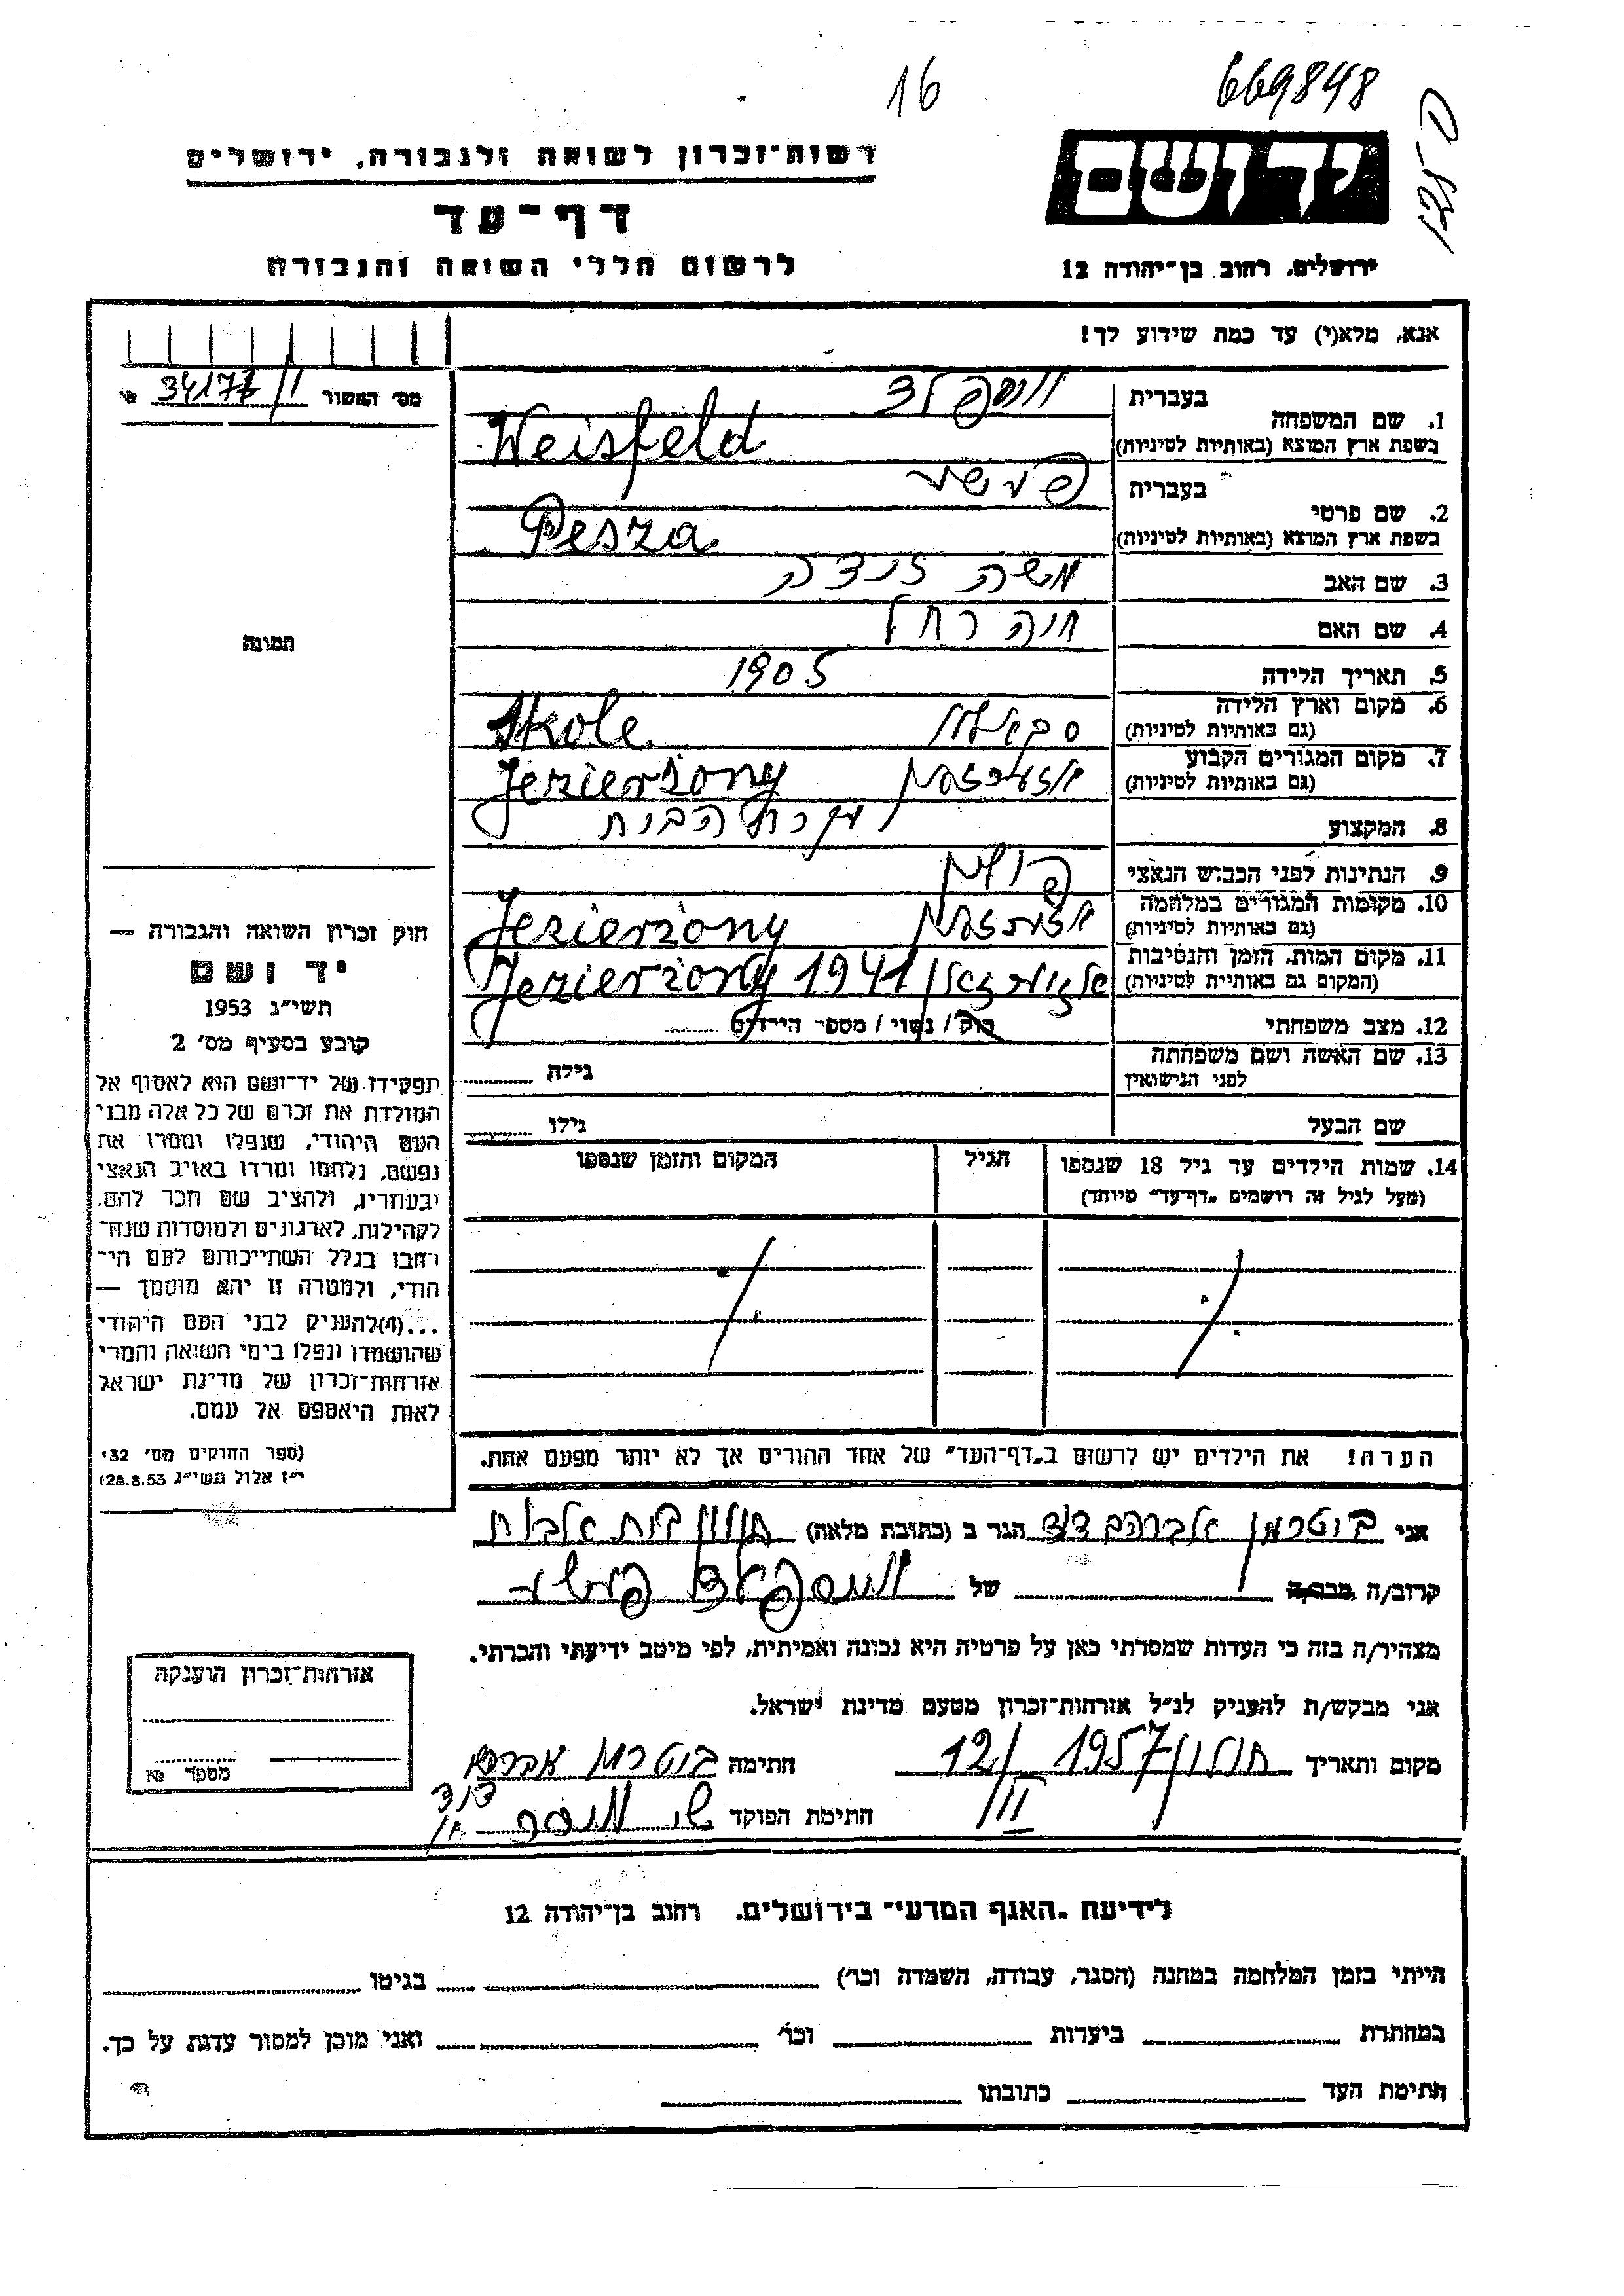 16
669848
רשות־זכרון לשואה ולגבורה, ירושלים
יד ושם
דף־עד
לרשום חללי השואה והגבורה
ירושלים, רחוב בן־יהודה 12
אנא, מלא(י) עד כמה שידוע לך!
מס׳ האשור
1. שם המשפחה
בעברית
ווייספלד
בשפת ארץ המוצא (באותיות לטיניות)
Weisfeld
2. שם פרטי
בעברית
פעשע
בשפת ארץ המוצא (באותיות לטיניות)
Pesza
3. שם האב
משה
4. שם האם
חנה רחל
5. תאריך הלידה
1905
6. מקום וארץ הלידה
(גם באותיות לטיניות)
Skole
7. מקום המגורים הקבוע
(גם באותיות לטיניות)
Jezierzony
8. המקצוע
עקרת הבית
9. הנתינות לפני הכבוש הנאצי
פולין
10. מקומות המגורים במלחמה
(גם באותיות לטיניות)
Jezierzony
11. מקום המות, הזמן והנסיבות
(המקום גם באותיות לטיניות)
Jezierzony 1941
12. מצב משפחתי
רוק/ נשוי / מספר הילדים
13. שם האשה ושם משפחתה
לפני הנישואין
גילה
שם הבעל
גילו
14. שמות הילדים עד גיל 18 שנספו
(מעל לגיל זה רושמים „דף־עד" מיוחד)
הגיל
המקום והזמן שנספו
הערה! את הילדים יש לרשום ב„דף־העד" של אחד ההורים אך לא יותר מפעם אחת.
תמונה
חוק זכרון השואה והגבורה —
יד ושם
תשי״ג 1953
קובע בסעיף מס׳ 2
תפקידו של יד־ושם הוא לאסוף אל
המולדת את זכרם של כל אלה מבני
העם היהודי, שנפלו ומסרו את
נפשם, נלחמו ומרדו באויב הנאצי
ובעוזריו, ולהציב שם וזכר להם,
לקהילות, לארגונים ולמוסדות שנח־
רבו בגלל השתייכותם לעם הי־
הודי, ולמטרה זו יהא מוסמך —
...(4)להעניק לבני העם היהודי
שהושמדו ונפלו בימי השואה והמרי
אזרחות־זכרון של מדינת ישראל
לאות היאספם אל עמם.
(ספר החוקים מס׳ 132
י״ז אלול תשי״ג 28.8.53)
אני בוטרמן אברהם דוד הגר ב (כתובת מלאה) חולון
קרוב/ה מכר/ה של ווייספלד פעשע
מצהיר/ה בזה כי העדות שמסרתי כאן על פרטיה היא נכונה ואמיתית, לפי מיטב ידיעתי והכרתי.
אני מבקש/ת להעניק לנ״ל אזרחות־זכרון מטעם מדינת ישראל.
מקום ותאריך חולון 12/II 1957 חתימה בוטרמן אברהם
דוד
חתימת הפוקד
אזרחות־זכרון הוענקה
מספר №
לידיעת „האגף המדעי" בירושלים, רחוב בן־יהודה 12
הייתי בזמן המלחמה במחנה (הסגר, עבודה, השמדה וכו׳) בגיטו
במחתרת ביערות וכו׳ ואני מוכן למסור עדות על כך.
חתימת העד כתובתו